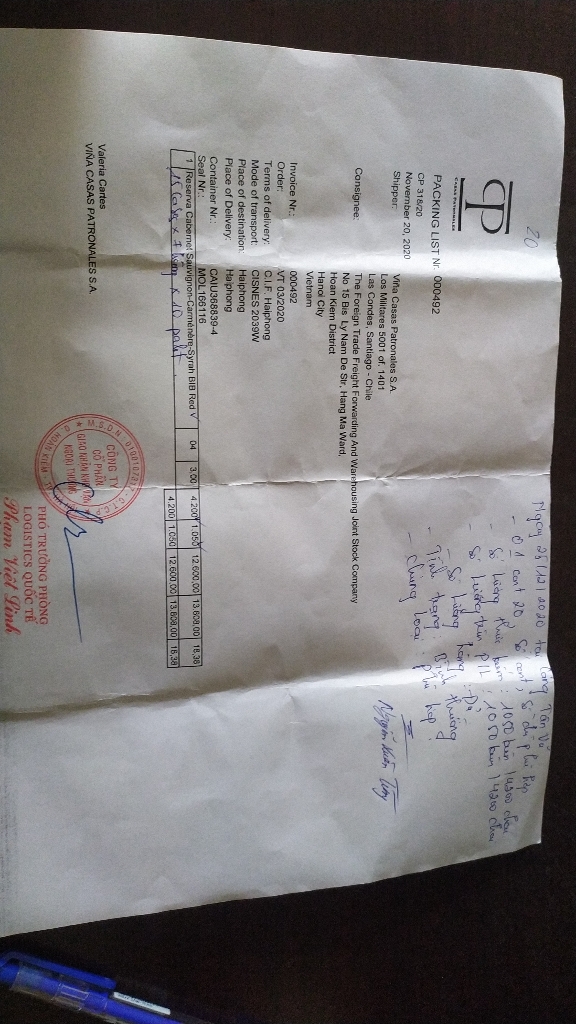 20
CP
CASAS PATRONALES
PACKING LIST Nr. 000492
CP 318/20
November 20, 2020
Shipper: Viña Casas Patronales S.A.
Los Militares 5001 of. 1401
Las Condes, Santiago - Chile
Consignee: The Foreign Trade Freight Forwarding And Warehousing Joint Stock Company
No 15 Bis Ly Nam De Str, Hang Ma Ward,
Hoan Kiem District
Hanoi City
Vietnam
Invoice Nr.: 000492
Order: VT 03/2020
Terms of delivery: C.I.F. Haiphong
Mode of transport: CISNES 2039W
Place of destination: Haiphong
Place of Delivery: Haiphong
Container Nr.: CAIU368839-4
Seal Nr.: MOL166116
1 Reserva Cabernet Sauvignon-Carménère-Syrah BIB Red V 04 3.00 4.200 1.050 12.600,00 13.808,00 18,38
4.200 1.050 12.600,00 13.808,00 18,38
15 x 7 x 10
Valeria Cartes
VIÑA CASAS PATRONALES S.A.
Ngày 28/12/2020 tại Cảng Tân Vũ
- 01 cont 20 số cont, số chì phù hợp
- Số lượng thực kiểm: 1050 / 4200
- Số lượng trên P/L: 1050 / 4200
- Số lượng hàng: Đủ
- Tình trạng: Bình thường
- Chủng loại: phù hợp
Nguyễn Xuân
CÔNG TY
CỔ PHẦN
GIAO NHẬN KHO VẬN
NGOẠI THƯƠNG
PHÓ TRƯỞNG PHÒNG
LOGISTICS QUỐC TẾ
Phạm Việt Linh